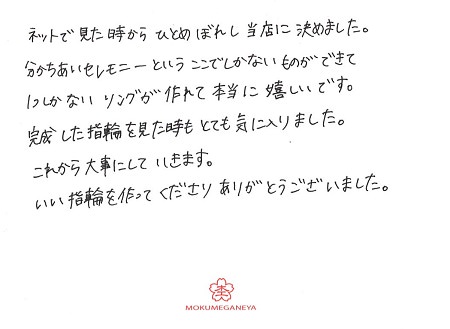 ネットで見た時からひとめぼれし当店に決めました。
分かちあいセレモニーというここでしかないものができて
1つしかないリングが作れて本当に嬉しいです。
完成した指輪を見た時もとても気に入りました。
これから大事にしていきます。
いい指輪を作ってくださりありがとうございました。
MOKUMEGANEYA